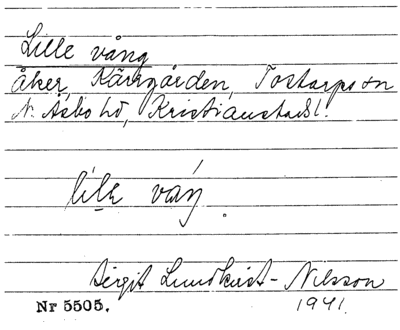 Lille vång
åker, Kärrgården, Tostarps sn
N. Åsbo hd, Kristianstads l.
lile váŋ.
Birgit Lundkvist-Nilsson
Nr 5505. 1941.